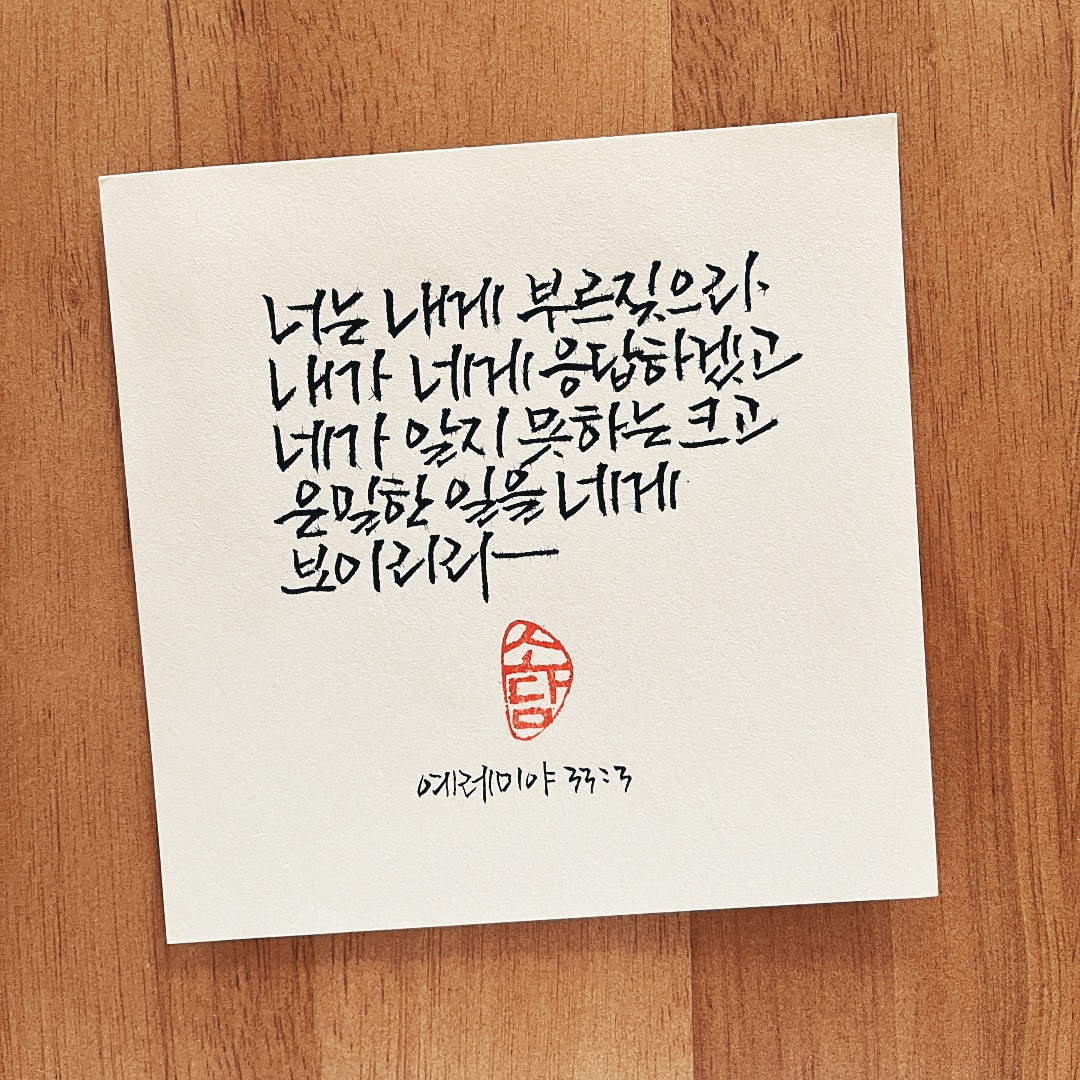 너는 내게 부르짖으라.
내가 네게 응답하겠고
네가 알지 못하는 크고
은밀한 일을 네게
보이리라
소담
예레미야 33:3